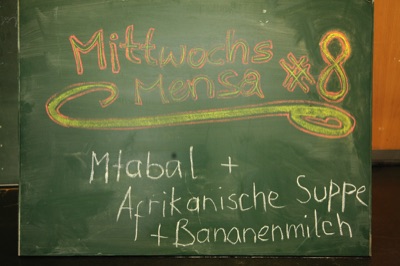 Mittwochs
Mensa #8
Mtabal +
Afrikanische Suppe
+ Bananenmilch